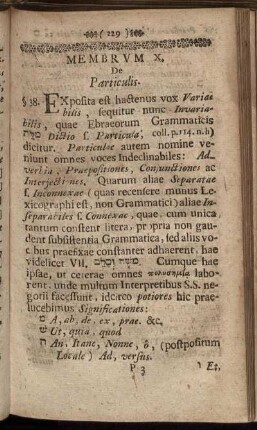 ( 129 )
MEMBRVM X.
De
Particulis.
§ 38. EXposita est hactenus vox Variabilis
, sequitur nunc Invariabilis
, quae Ebraeorum Grammaticis
מלה Dictio s. Particula, coll. p. 14. n. b)
dicitur. Particulae autem nomine veniunt
omnes voces Indeclinabiles: Adverbia
, Praepositiones, Conjunctiones ac
Interjectiones. Quarum aliae Separatae
s. Inconnexae (quas recensere munus Lexicographi
est, non Grammatici) aliae Inseparabiles
s. Connexae, quae, cum unica
tantum constent litera, propria non gaudent
subsistentia Grammatica, sed aliis vocibus
praefixae constanter adhaerent, hae
videlicet VII. משה וכלב. Cumque hae
ipsae, ut ceterae omnes πολυσημίᾳ laborent,
unde multum Interpretibus S.S. negotii
facessunt, ideireo potiores hic praelucebimus
Significationes:
מ A, ab, de, ex, prae. &c.
ש Ut, quia, quod
ה An, Itane, Nonne, ô, (postpositum
Locale) Ad, versus.
P 3
ו Et,